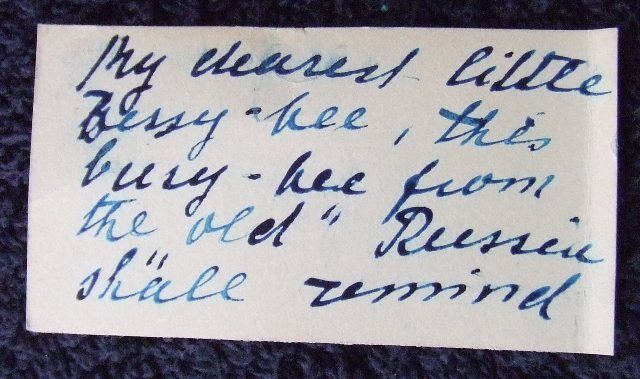 My dearest little
Bessy-bee, this
busy-bee from
the "old" Russia
shall remind